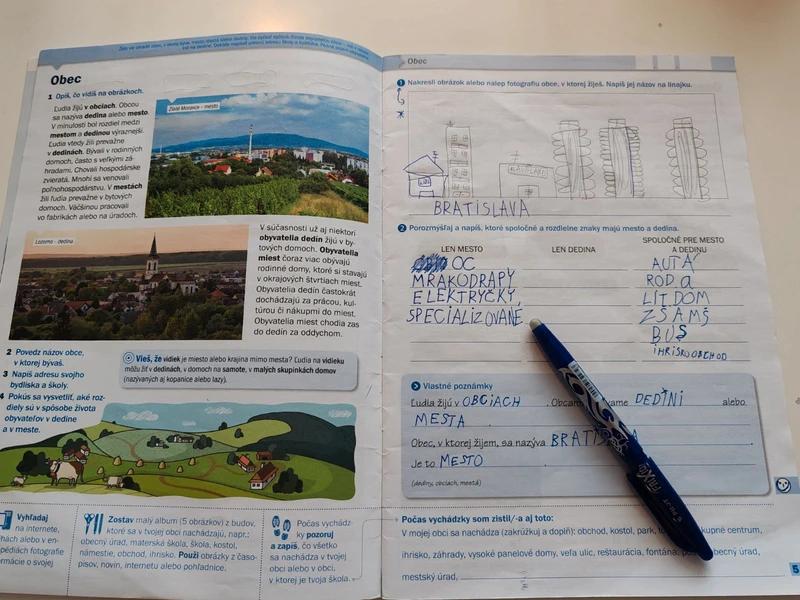 Obec
1 Opíš, čo vidíš na obrázkoch.
Ľudia žijú v obciach. Obcou
sa nazýva dedina alebo mesto.
V minulosti bol rozdiel medzi
mestom a dedinou výraznejší.
Ľudia vtedy žili prevažne
v dedinách. Bývali v rodinných
domoch, často s veľkými zá-
hradami. Chovali hospodárske
zvieratá. Mnohí sa venovali
poľnohospodárstvu. V mestách
žili ľudia prevažne v bytových
domoch. Väčšinou pracovali
vo fabrikách alebo na úradoch.
Zlaté Moravce - mesto
Lozorno - dedina
V súčasnosti už aj niektorí
obyvatelia dedín žijú v by-
tových domoch. Obyvatelia
miest čoraz viac obývajú
rodinné domy, ktoré si stavajú
v okrajových štvrtiach miest.
Obyvatelia dedín častokrát
dochádzajú za prácou, kul-
túrou či nákupmi do miest.
Obyvatelia miest chodia zas
do dedín za oddychom.
2 Povedz názov obce,
v ktorej bývaš.
3 Napíš adresu svojho
bydliska a školy.
4 Pokús sa vysvetliť, aké roz-
diely sú v spôsobe života
obyvateľov v dedine
a v meste.
Vieš, že vidiek je miesto alebo krajina mimo mesta? Ľudia na vidieku
môžu žiť v dedinách, v domoch na samote, v malých skupinkách domov
(nazývaných aj kopanice alebo lazy).
Vyhľadaj
na internete,
alebo v en-
pédiách fotografie
rmácie o svojej
Zostav malý album (5 obrázkov) z budov,
ktoré sa v tvojej obci nachádzajú, napr.:
obecný úrad, materská škola, škola, kostol,
námestie, obchod, ihrisko. Použi obrázky z časo-
pisov, novín, internetu alebo pohľadnice.
Počas vychádz-
ky pozoruj
a zapíš, čo všetko
sa nachádza v tvojej
obci alebo v obci,
v ktorej je tvoja škola.
Obec
1 Nakresli obrázok alebo nalep fotografiu obce, v ktorej žiješ. Napíš jej názov na linajku.
BRATISLAVA
2 Porozmýšľaj a napíš, ktoré spoločné a rozdielne znaky majú mesto a dedina.
LEN MESTO
OC
MRAKODRAPY
ELEKTRYČKY,
ŠPECIALIZOVANÉ
LEN DEDINA
SPOLOČNÉ PRE MESTO
A DEDINU
AUTÁ
ROD a
LIT DOM
ZŠ A MŠ
BUS
IHRISKO OBCHOD
Vlastné poznámky
Ľudia žijú v OBCIACH. Obcami nazývame DEDINI alebo
MESTA
Obec, v ktorej žijem, sa nazýva BRATISLAVA.
Je to MESTO
(dediny, obciach, mestá)
Počas vychádzky som zistil/-a aj toto:
V mojej obci sa nachádza (zakrúžkuj a doplň): obchod, kostol, park, nákupné centrum,
ihrisko, záhrady, vysoké panelové domy, veľa ulíc, reštaurácia, fontána, obecný úrad,
mestský úrad,
5